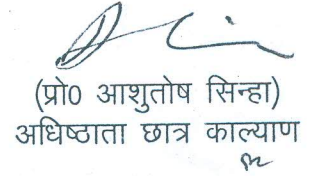 (प्रो0 आशुतोष सिन्हा)
अधिष्ठाता छात्र काल्याण